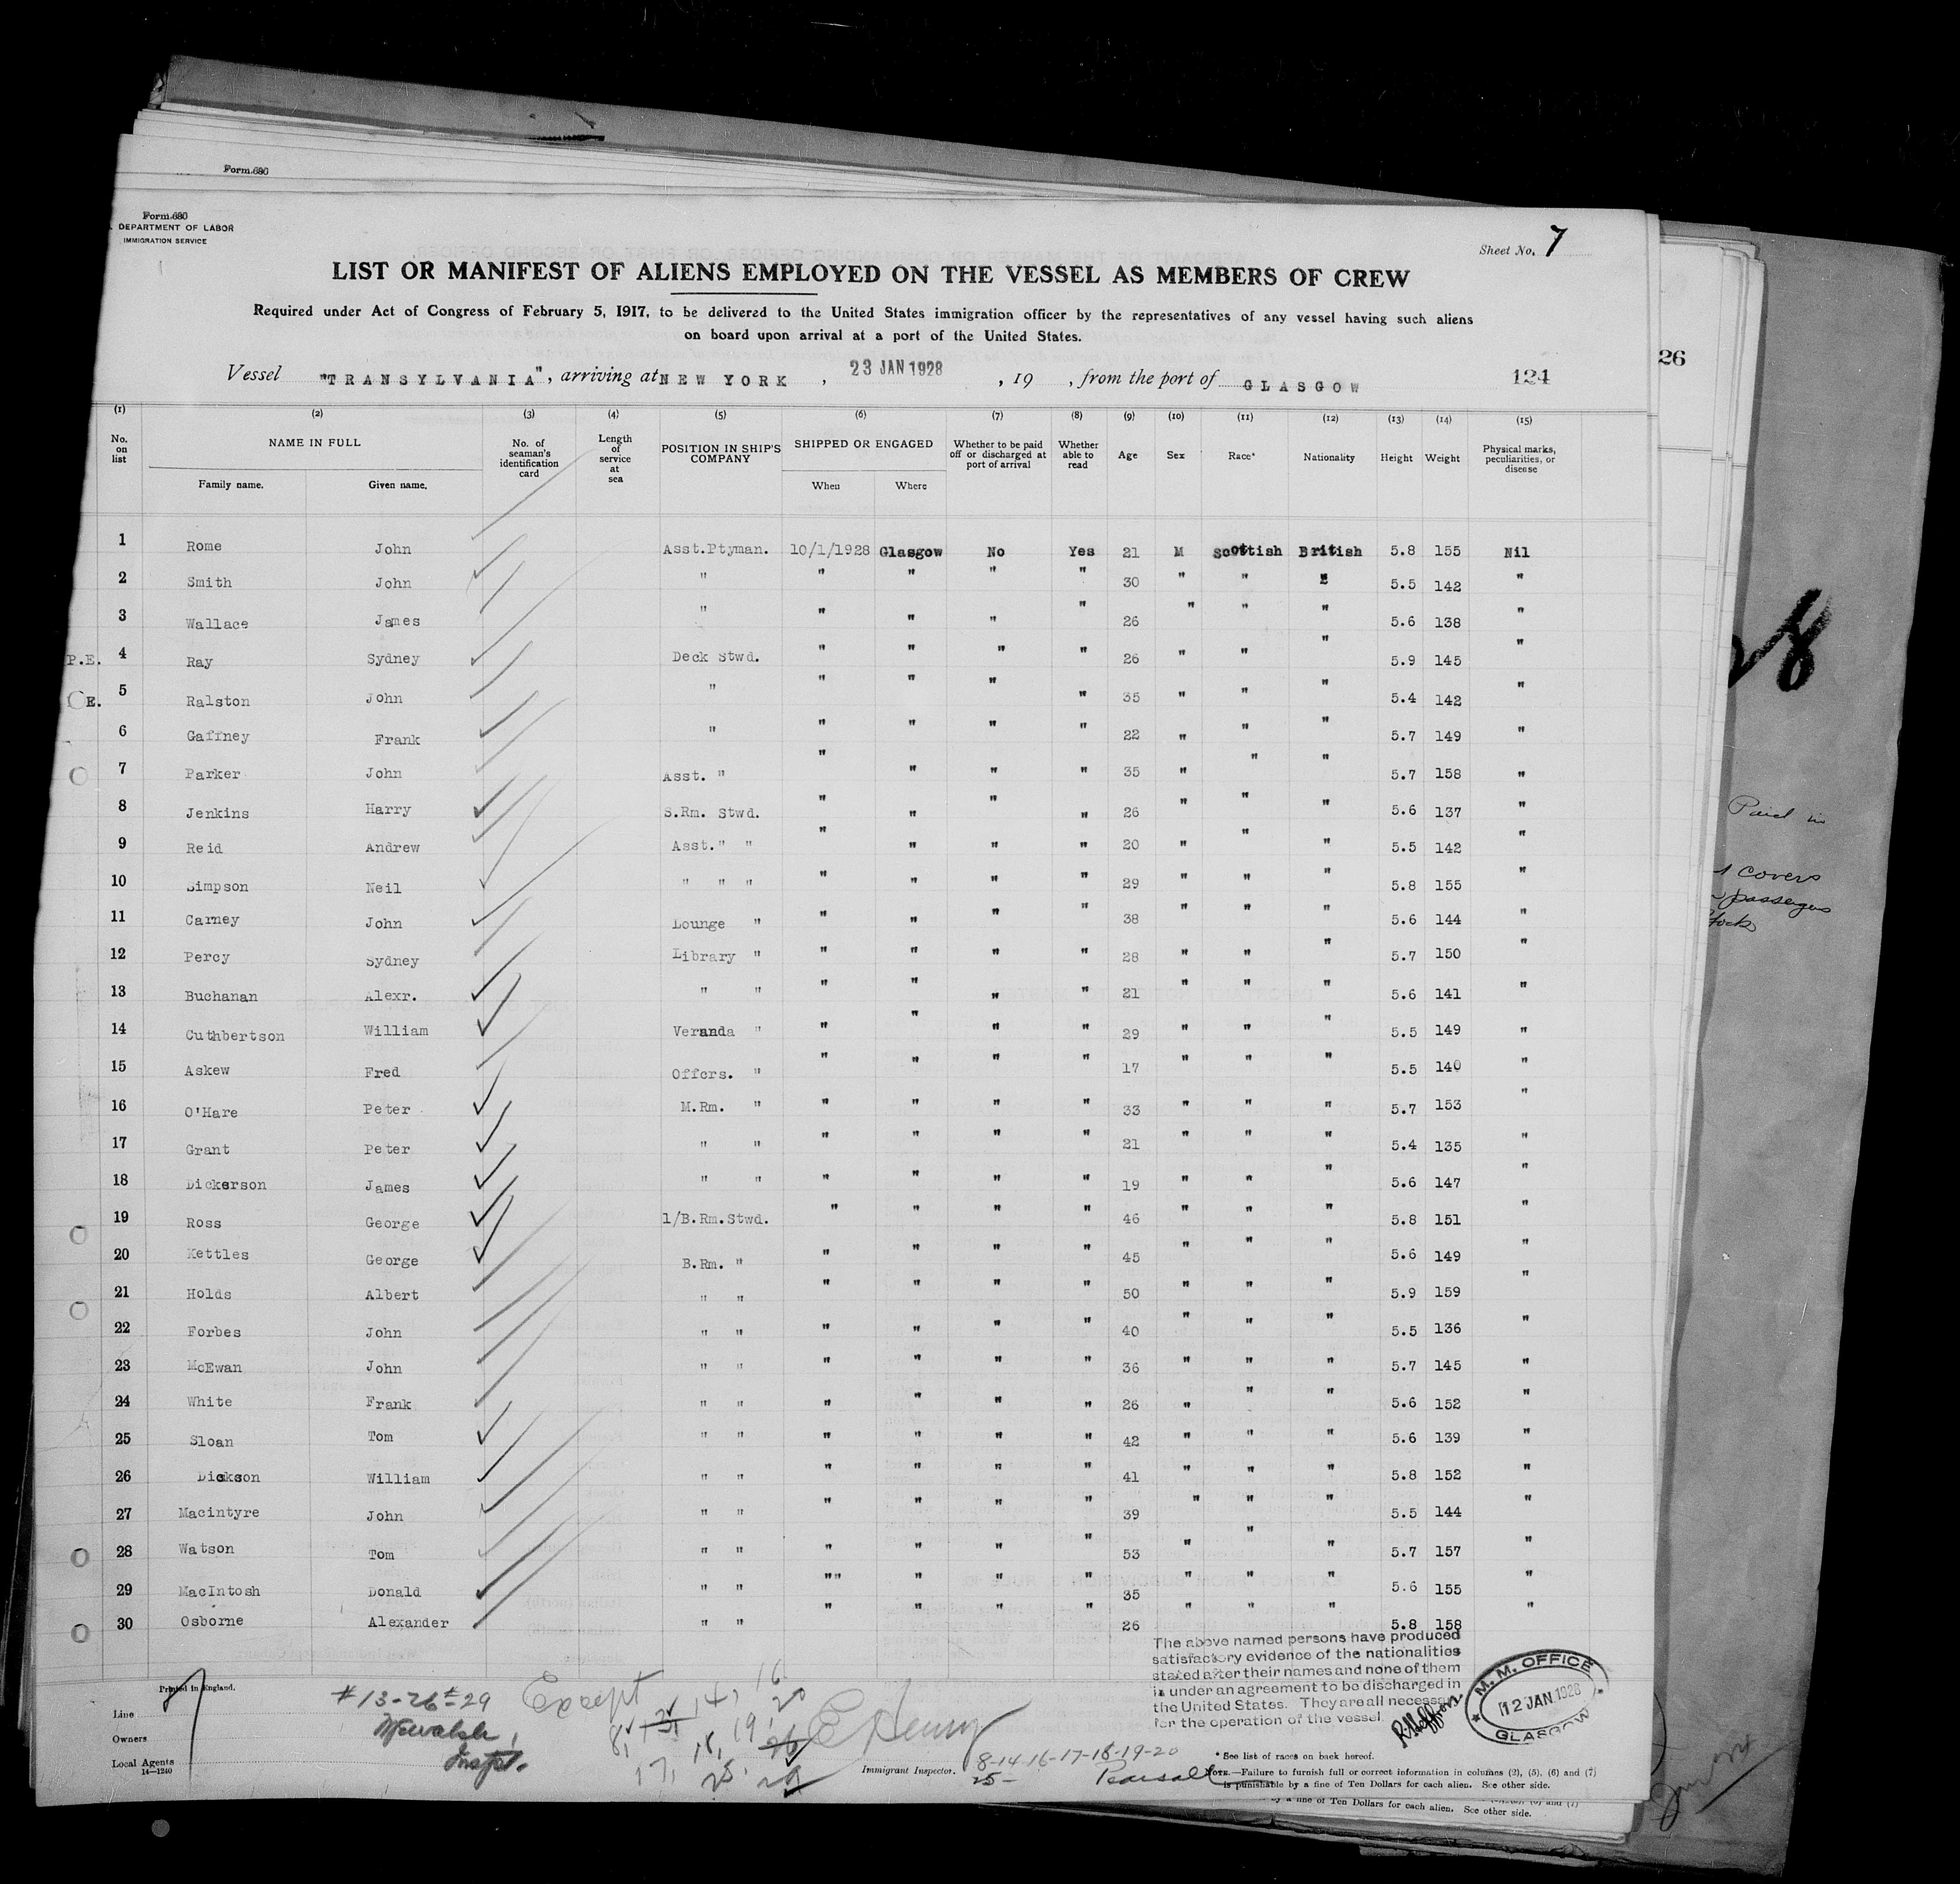 Form 686
Form 686
DEPARTMENT OF LABOR
IMMIGRATION SERVICE
Sheet No. 7
LIST OR MANIFEST OF ALIENS EMPLOYED ON THE VESSEL AS MEMBERS OF CREW
Required under Act of Congress of February 5, 1917, to be delivered to the United States immigration officer by the representatives of any vessel having such aliens
on board upon arrival at a port of the United States.
26
Vessel "TRANSYLVANIA", arriving at NEW YORK, 23 JAN 1928, 19 , from the port of GLASGOW 124
(1) (2) (3) (4) (5) (6) (7) (8) (9) (10) (11) (12) (13) (14) (15)
No. on list NAME IN FULL No. of seaman's identification card Length of service at sea POSITION IN SHIP'S COMPANY SHIPPED OR ENGAGED Whether to be paid off or discharged at port of arrival Whether able to read Age Sex Race* Nationality Height Weight Physical marks, peculiarities, or disease
Family name. Given name. When Where
1 Rome John Asst.Ptyman. 10/1/1928 Glasgow No Yes 21 M Scottish British 5.8 155 Nil
2 Smith John " " " " " 30 " " " 5.5 142 "
3 Wallace James " " " " " 26 " " " 5.6 138 "
P.E. 4 Ray Sydney Deck Stwd. " " " " 26 " " " 5.9 145 "
E. 5 Ralston John " " " " " 35 " " " 5.4 142 "
6 Gaffney Frank " " " " " 22 " " " 5.7 149 "
7 Parker John Asst. " " " " " 35 " " " 5.7 158 "
8 Jenkins Harry S.Rm. Stwd. " " " " 26 " " " 5.6 137 "
9 Reid Andrew Asst." " " " " " 20 " " " 5.5 142 "
10 Simpson Neil " " " " " " " 29 " " " 5.8 155 "
11 Carney John Lounge " " " " " 38 " " " 5.6 144 "
12 Percy Sydney Library " " " " " 28 " " " 5.7 150 "
13 Buchanan Alexr. " " " " " " 21 " " " 5.6 141 "
14 Cuthbertson William Veranda " " " " " 29 " " " 5.5 149 "
15 Askew Fred Offcrs. " " " " " 17 " " " 5.5 140 "
16 O'Hare Peter M.Rm. " " " " " 33 " " " 5.7 153 "
17 Grant Peter " " " " " " 21 " " " 5.4 135 "
18 Dickerson James " " " " " " 19 " " " 5.6 147 "
19 Ross George 1/B.Rm.Stwd. " " " " 46 " " " 5.8 151 "
20 Kettles George B.Rm. " " " " " 45 " " " 5.6 149 "
21 Holds Albert " " " " " " 50 " " " 5.9 159 "
22 Forbes John " " " " " " 40 " " " 5.5 136 "
23 McEwan John " " " " " " 36 " " " 5.7 145 "
24 White Frank " " " " " " 26 " " " 5.6 152 "
25 Sloan Tom " " " " " " 42 " " " 5.6 139 "
26 Dickson William " " " " " " 41 " " " 5.8 152 "
27 Macintyre John " " " " " " 39 " " " 5.5 144 "
28 Watson Tom " " " " " " 53 " " " 5.7 157 "
29 MacIntosh Donald " " "" " " " 35 " " " 5.6 155 "
30 Osborne Alexander " " " " " " 26 " " " 5.8 158 "
The above named persons have produced
satisfactory evidence of the nationalities
stated after their names and none of them
is under an agreement to be discharged in
the United States. They are all necessary
for the operation of the vessel.
M. M. OFFICE
12 JAN 1928
GLASGOW
Printed in England.
Line
Owners
Local Agents
14—1240
#13-26-29
Except
8, 14, 16
17, 18, 19, 20
25, 26 29
E Henry
Immigrant Inspector.
8-14-16-17-18-19-20
25-
Pearsall
* See list of races on back hereof.
NOTE.—Failure to furnish full or correct information in columns (2), (5), (6) and (7)
is punishable by a fine of Ten Dollars for each alien. See other side.
by a fine of Ten Dollars for each alien. See other side.
28
Paid in
covers
passengers